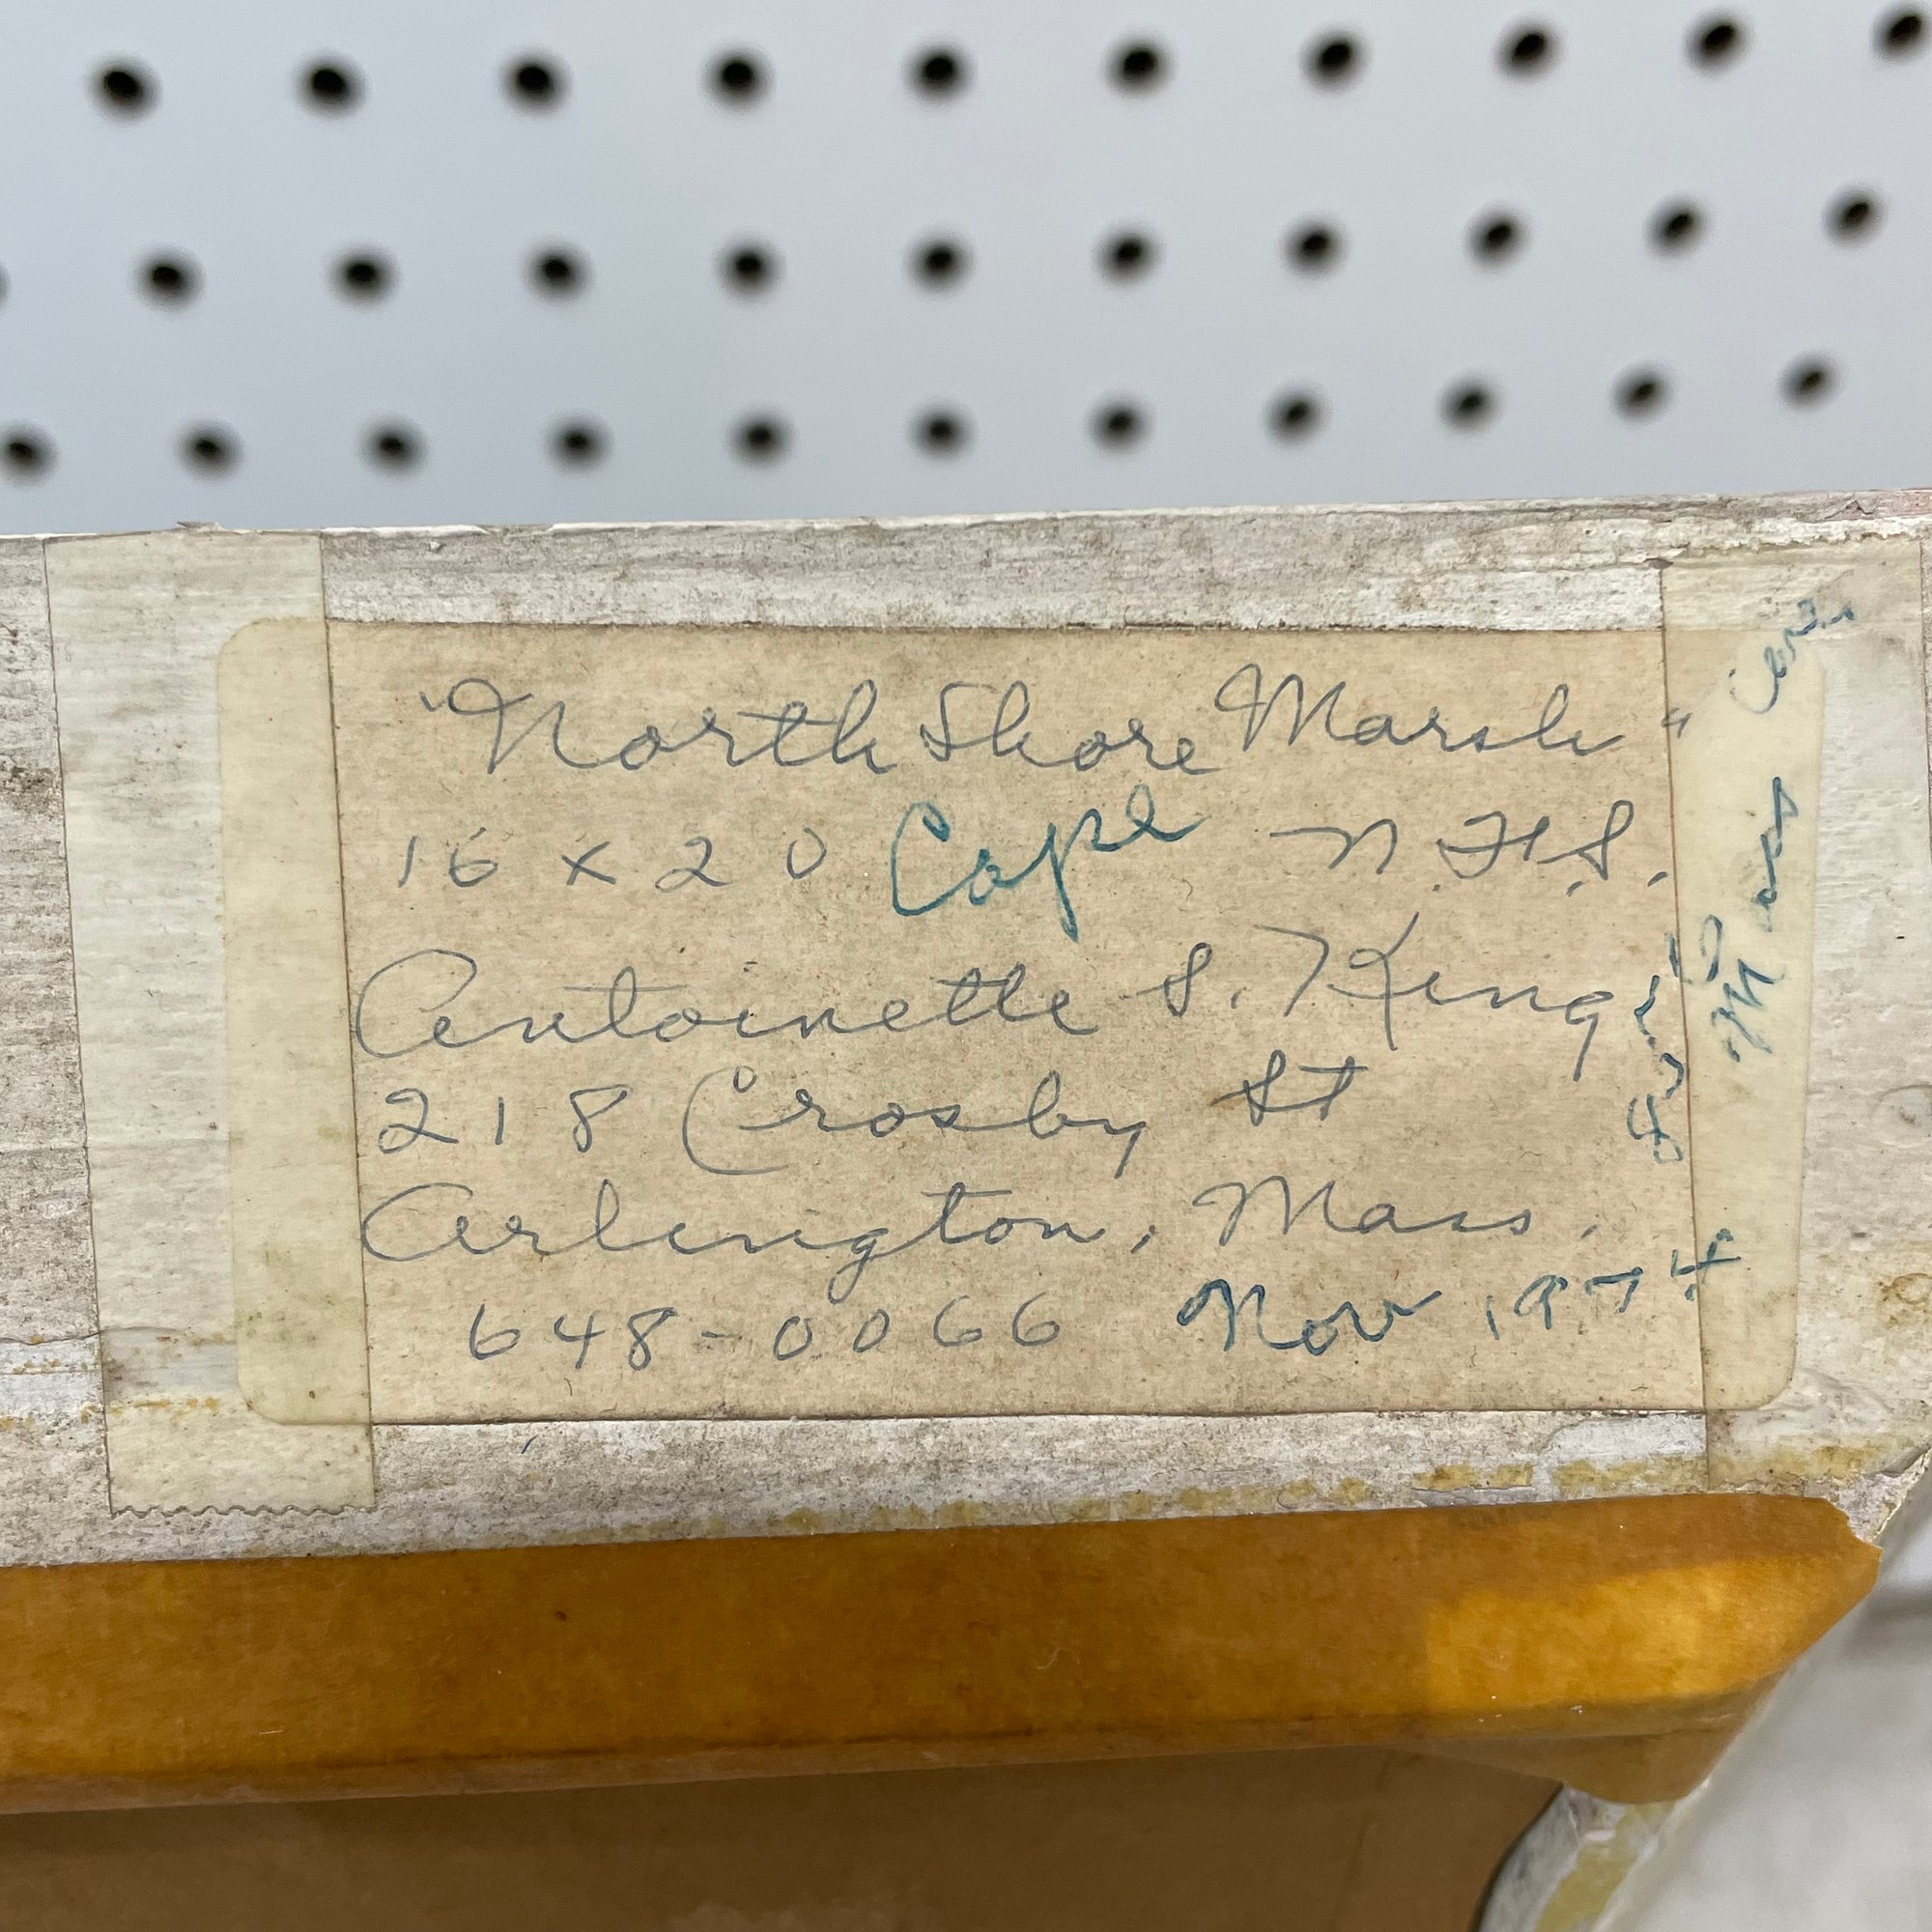 "North Shore Marsh"
16 x 20 Cape N.F.S.
Antoinette S. King
218 Crosby St
Arlington, Mass.
648-0066 Nov 1974
Mass